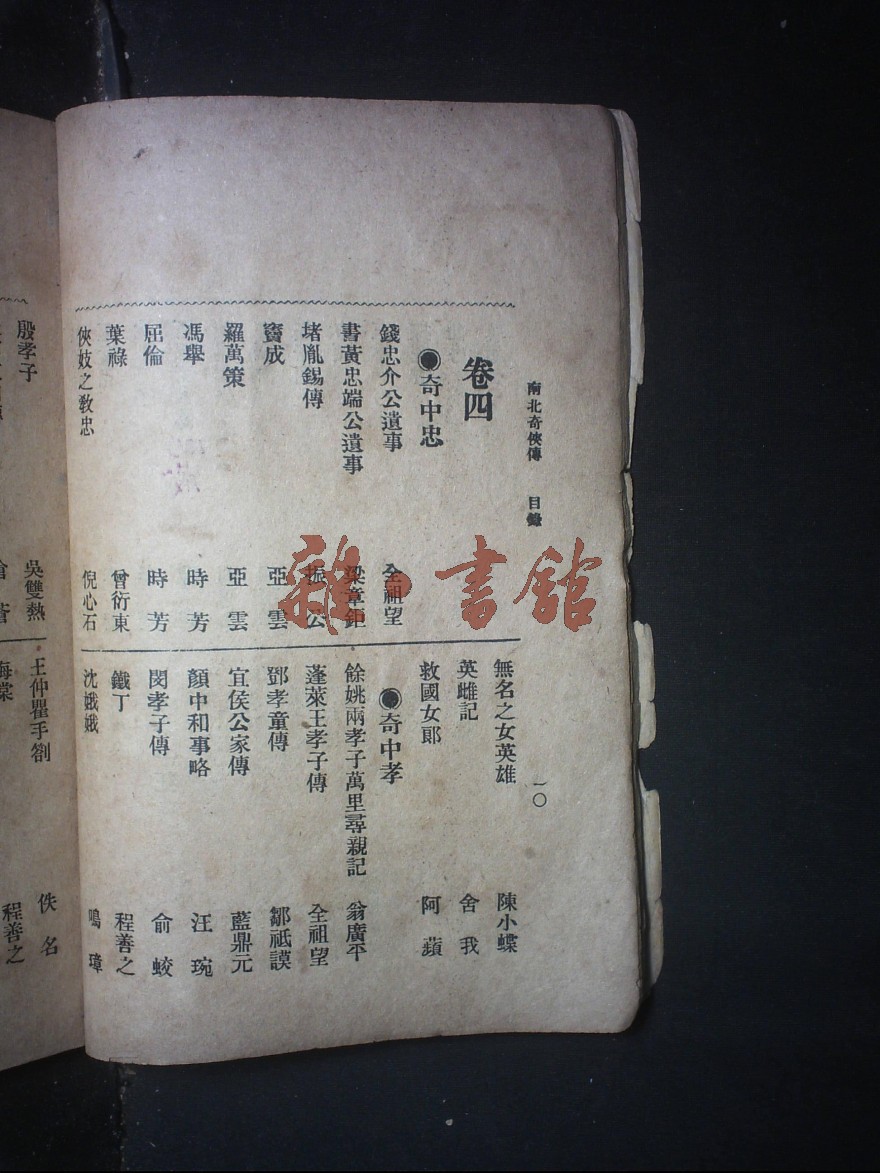 南北奇俠傳 目錄 一〇
卷四
●奇中忠
錢忠介公遺事 全祖望
書黃忠端公遺事 梁章鉅
堵胤錫傳 振公
竇成 亞雲
羅萬策 亞雲
馮舉 時芳
屈倫 時芳
葉祿 曾衍東
俠妓之教忠 倪心石
無名之女英雄 陳小蝶
英雌記 舍我
救國女郎 阿蘋
●奇中孝
餘姚兩孝子萬里尋親記 翁廣平
蓬萊王孝子傳 全祖望
鄧孝童傳 鄒祇謨
宜侯公家傳 藍鼎元
顏中和事略 汪琬
閔孝子傳 俞蛟
鐵丁 程善之
沈娥娥 鳴璋
殷孝子 吳雙熱
王仲瞿手劄 佚名
海棠 程善之
雜書館